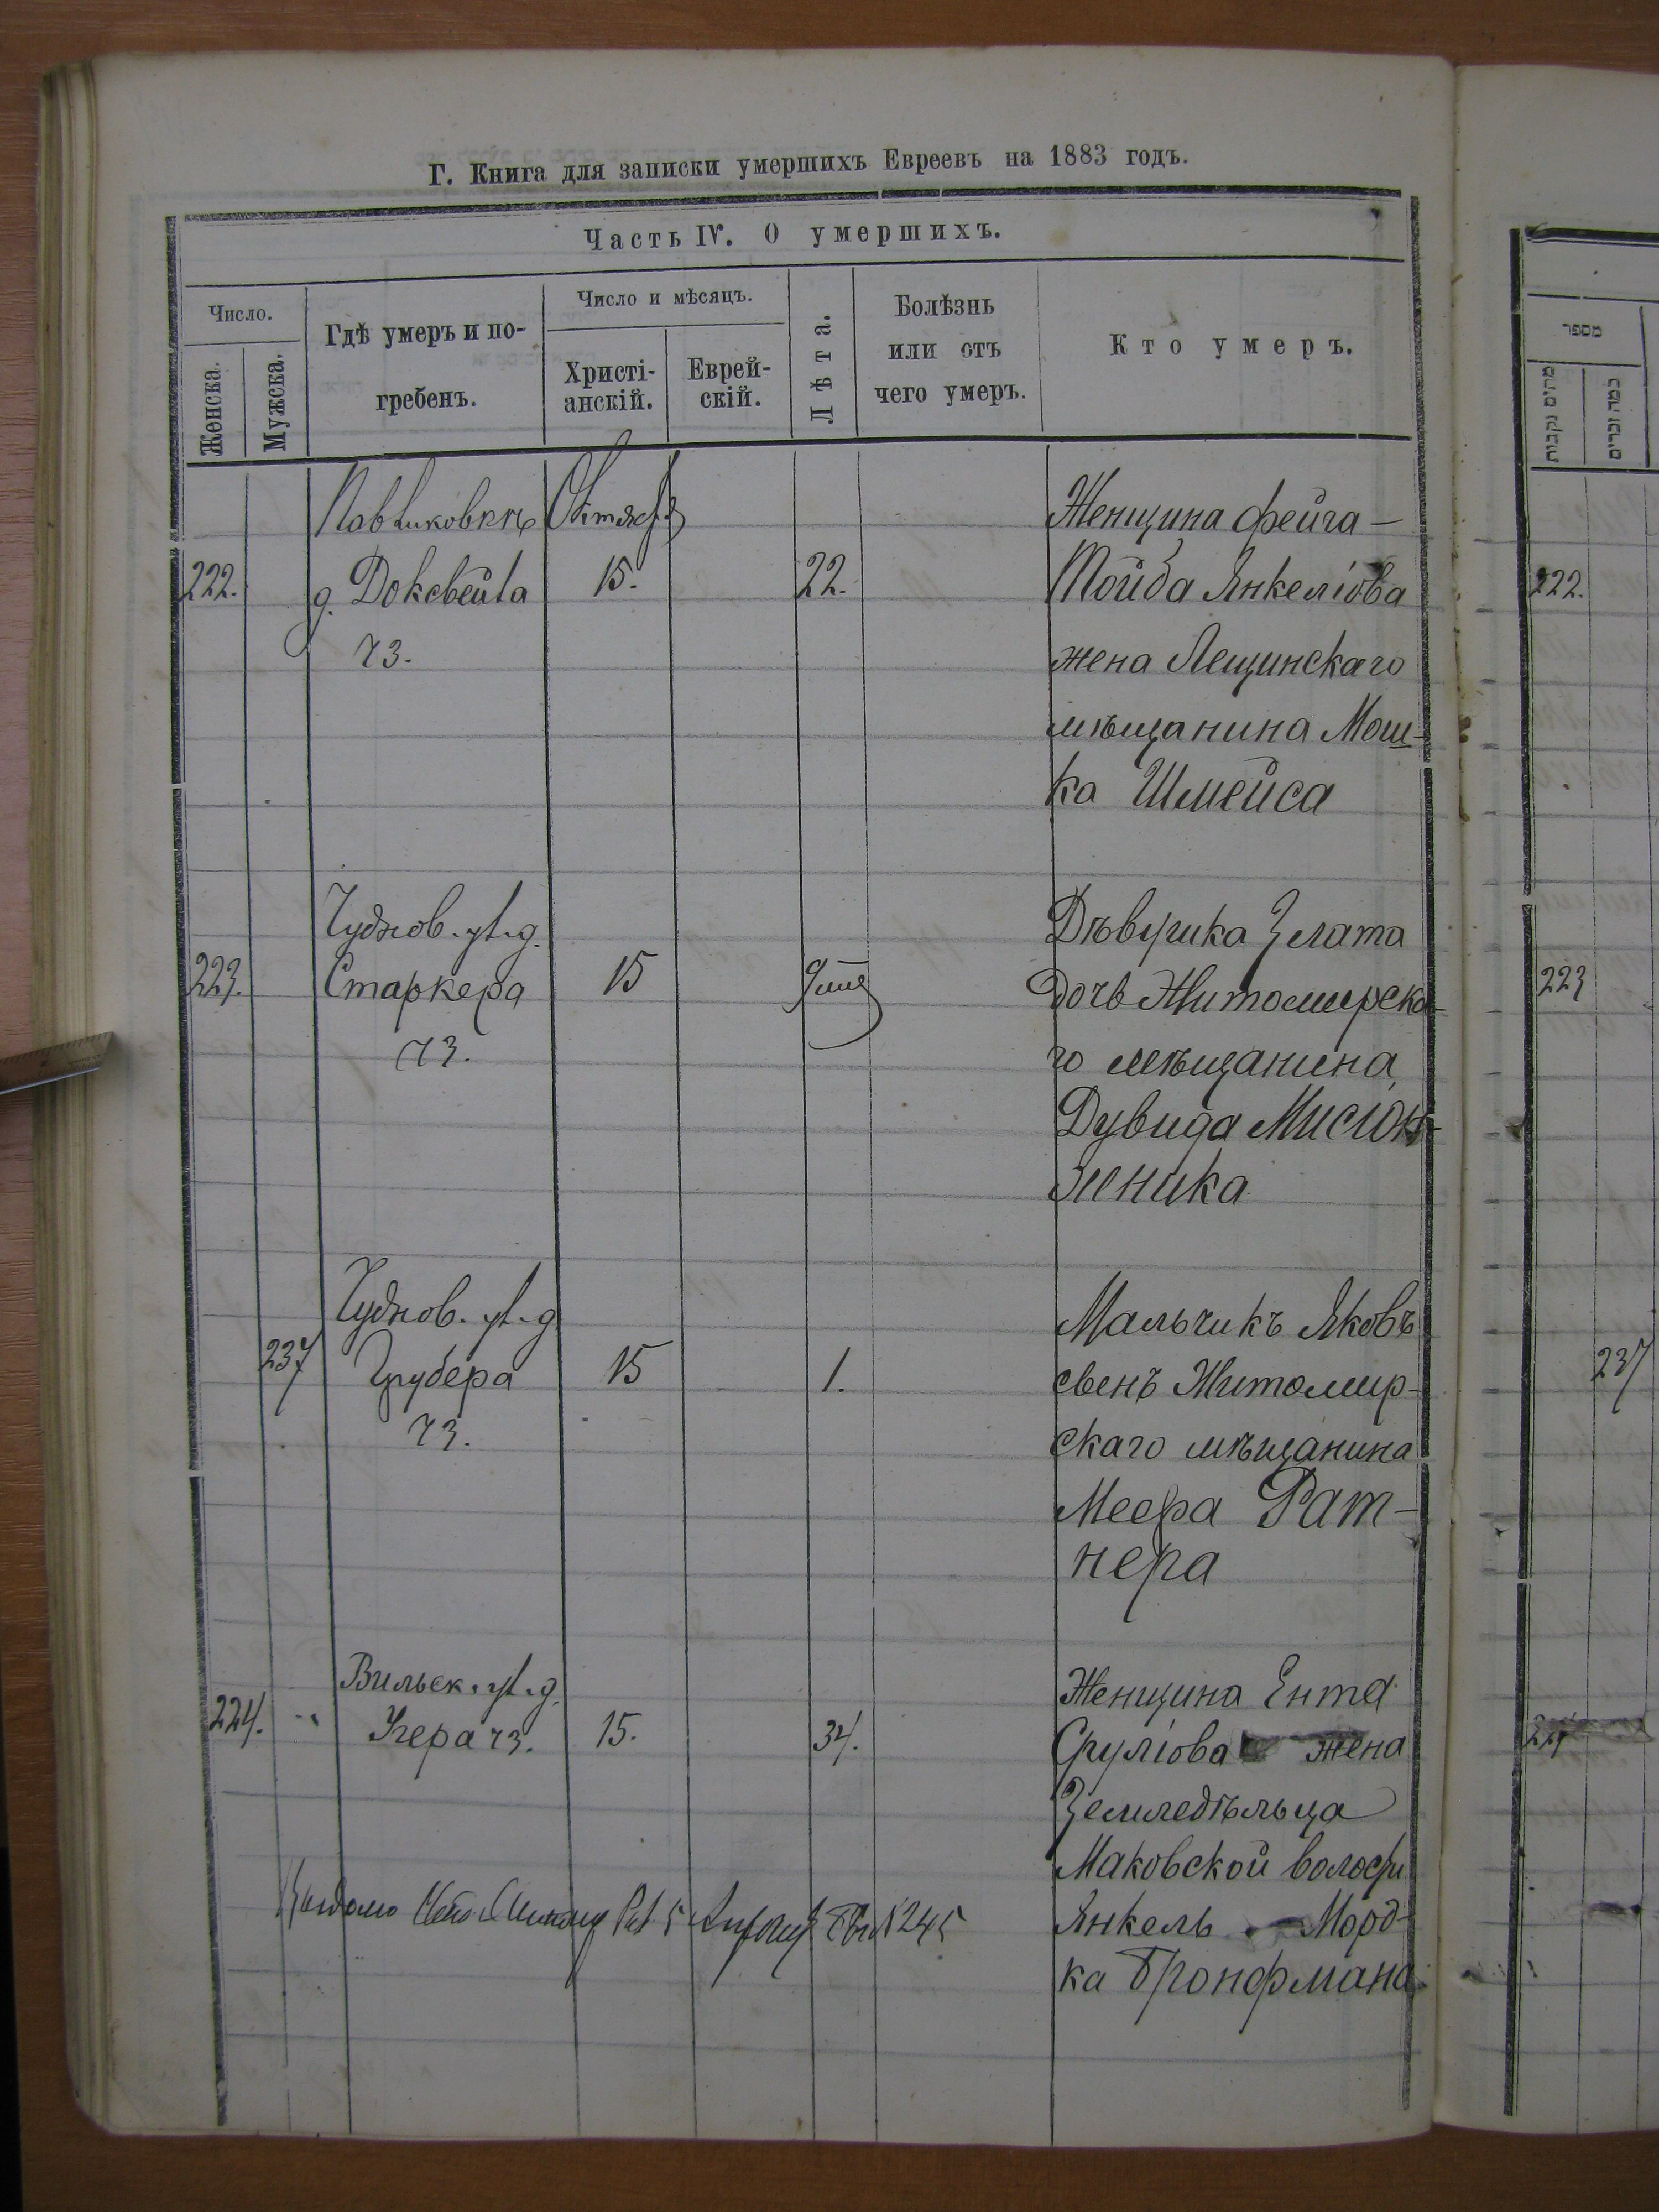 Г. Книга для записки умершихъ Евреевъ на 1883 годъ.
Часть IV. О умершихъ.
Число.
Женска.
Мужска.
Гдѣ умеръ и по-
гребенъ.
Число и мѣсяцъ.
Христі-
анскій.
Еврей-
скій.
Лѣта.
Болѣзнь
или отъ
чего умеръ.
Кто умеръ.
Октября
222.
15.
22.
Женщина Фейга-
Тойба Янкеліова
жена Лещинскаго
мѣщанина Мош-
ка Шмейса
223.
Чуднов. ул. д.
Старкера
15
Дѣвушка Злата
дочь Житомирска-
го мѣщанина
Дувида
237
Чуднов. ул. д
Грубера
15
1.
Мальчикъ Яковъ
сынъ Житомир-
скаго мѣщанина
Меера Рат-
нера
224.
Вильск. ул. д.
15.
34.
Женщина Ента
Сруліова жена
Земледѣльца
Маковской
Янкель Морд-
ка Бронфмана
245
מספר
222.
223
237
224